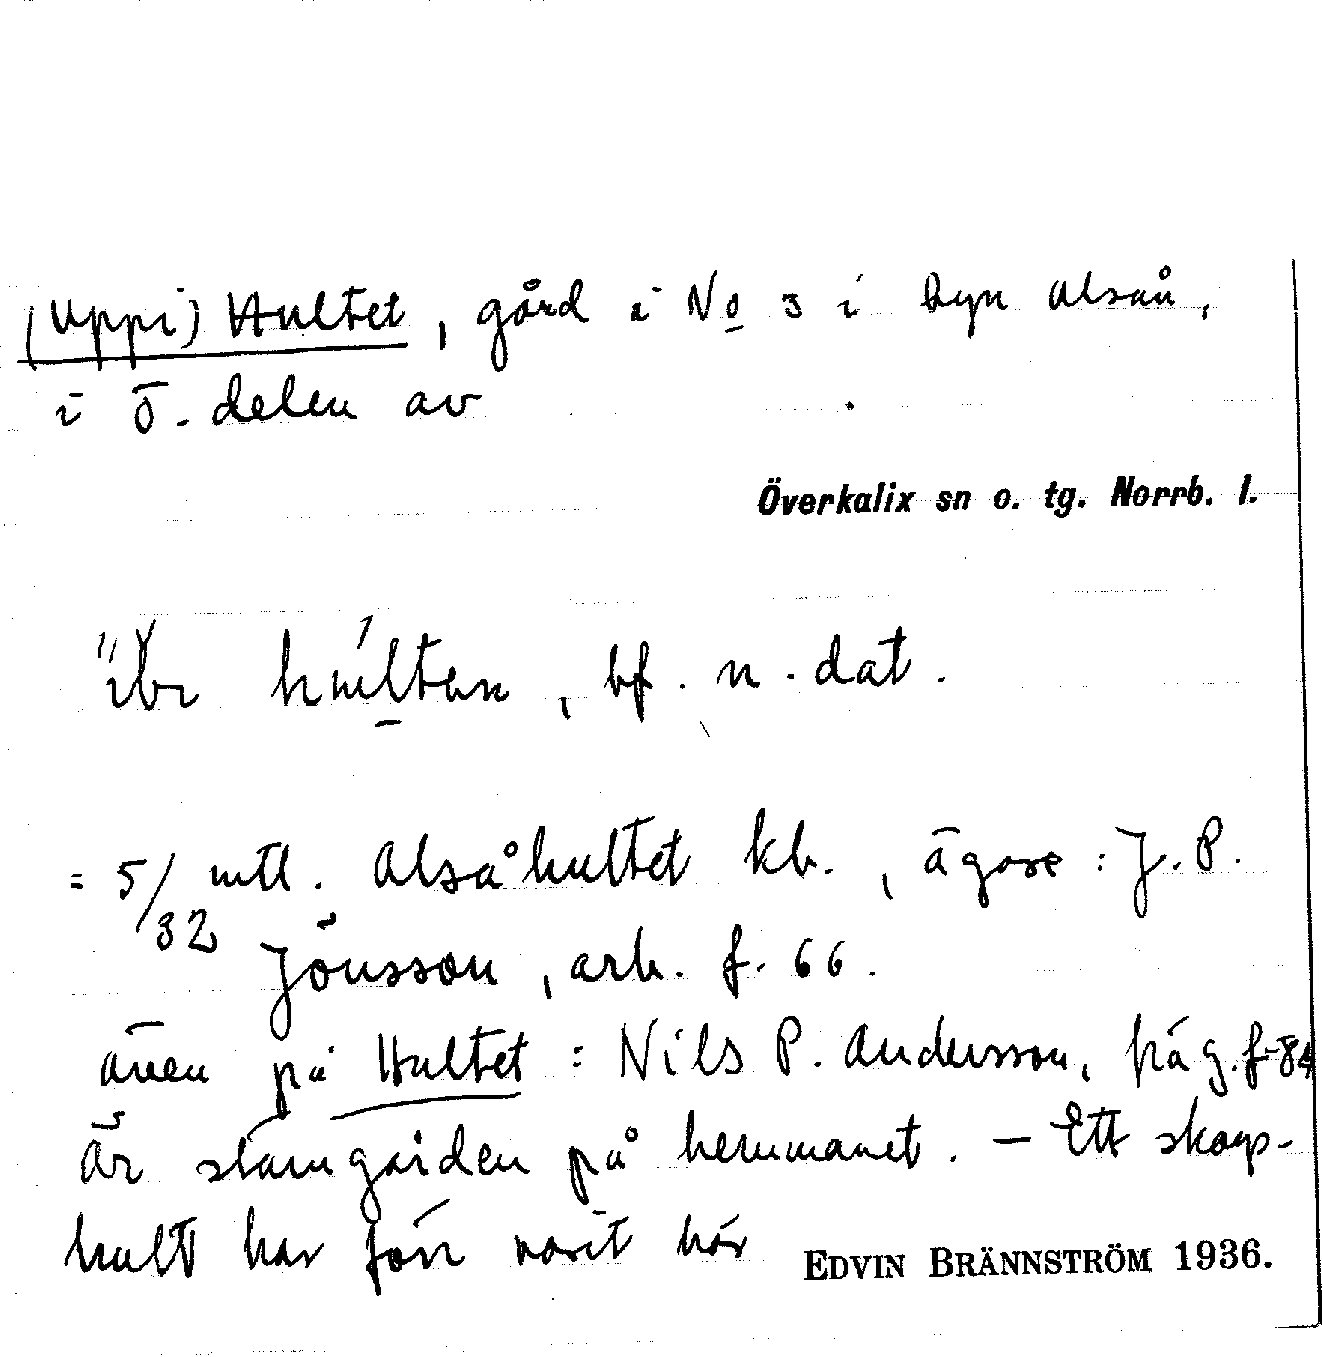 (Uppi) Hultet, gård i No 3 i byn Alsån,
i ö. delen av
Överkalix sn o. tg. Norrb. l.
bf. n. dat.
= 5/32 mtl. Alsåhultet kb., ägare: J. P.
Jönsson, arb. f. 66.
även på Hultet: Nils P. Andersson, häg. f. 84
Är stamgården på hemmanet. – Ett skogs-
hult har förr varit här
EDVIN BRÄNNSTRÖM 1936.